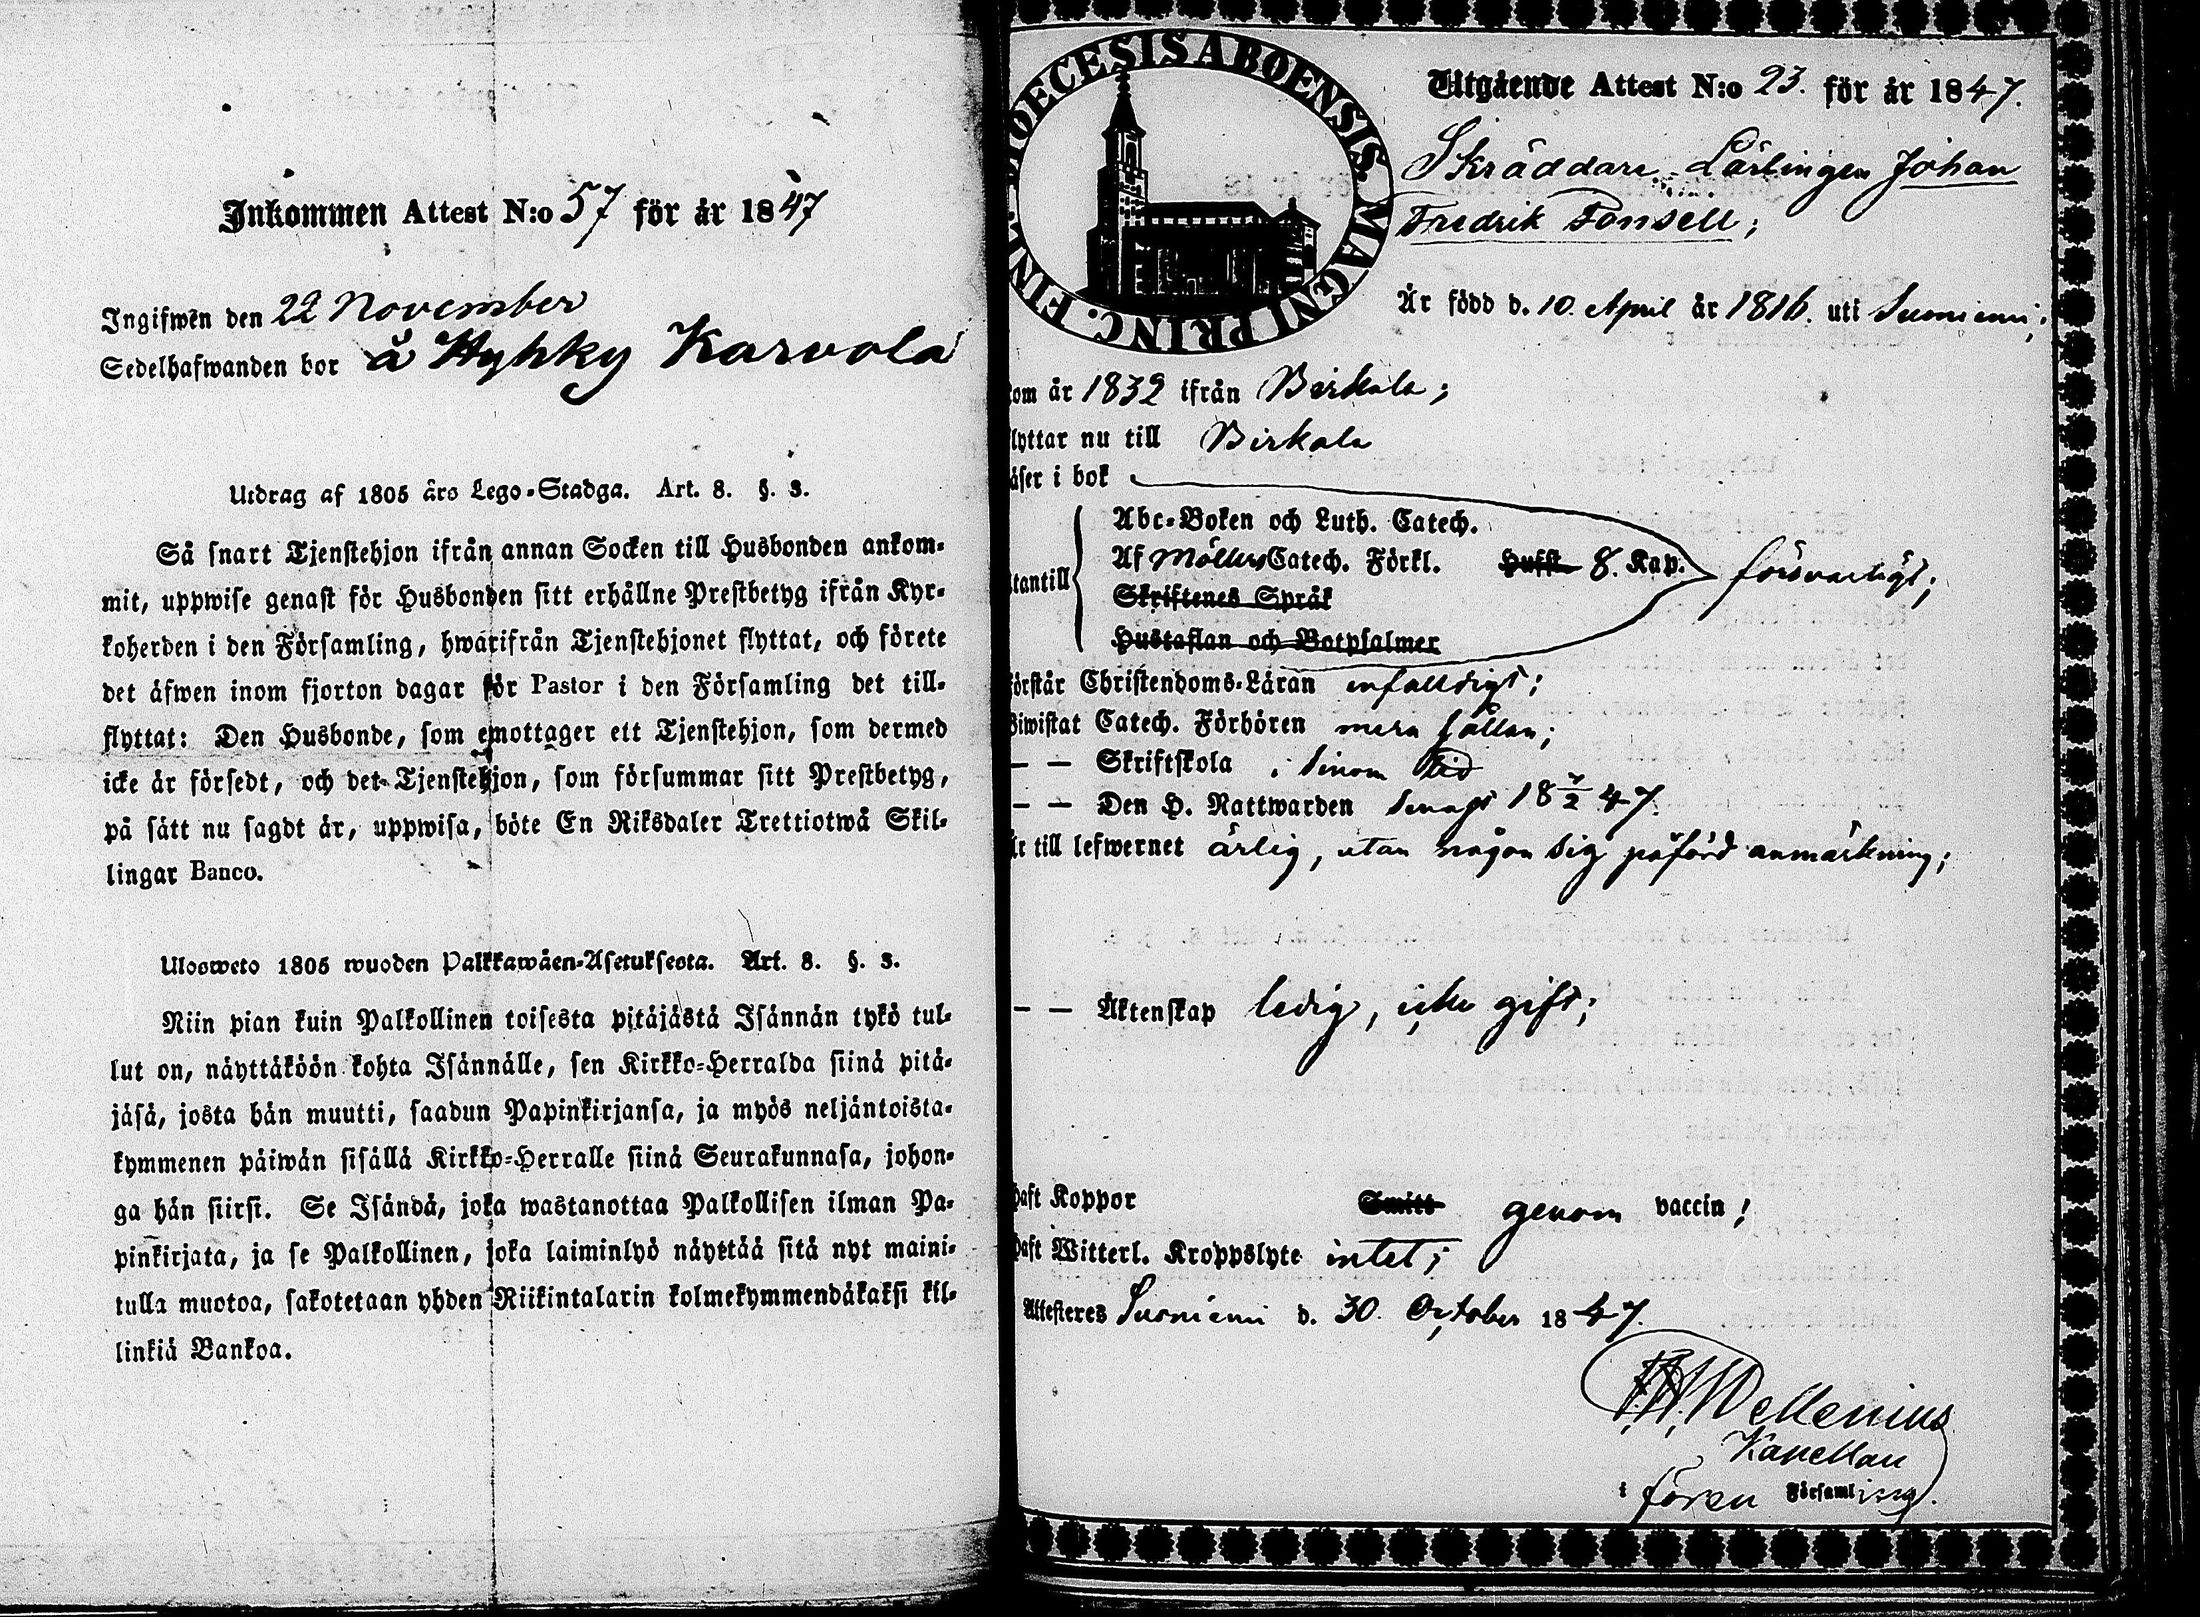 Inkommen Attest N:o 57 för år 1847
Ingifwen den 22 November
Sedelhafwanden bor å Hyhky Karvola
Utdrag af 1805 års Lego-Stadga. Art. 8. §. 3.
Så snart Tjenstehjon ifrån annan Socken till Husbonden ankom-
mit, uppwise genast för Husbonden sitt erhållne Prestbetyg ifrån Kyr-
koherden i den Församling, hwarifrån Tjenstehjonet flyttat, och förete
det äfwen inom fjorton dagar för Pastor i den Församling det till-
flyttat: Den Husbonde, som emottager ett Tjenstehjon, som dermed
icke är försedt, och det Tjenstehjon, som försummar sitt Prestbetyg,
på sätt nu sagdt är, uppwisa, böte En Riksdaler Trettiotwå Skil-
lingar Banco.
Ulosweto 1805 wuoden Palkkawäen-Asetuksesta. Art. 8. §. 3.
Niin pian kuin Palkollinen toisesta pitäjästä Isännän tykö tul-
lut on, näyttäköön kohta Isännälle, sen Kirkko-Herralda siinä pitä-
jäsä, josta hän muutti, saadun Papinkirjansa, ja myös neljäntoista-
kymmenen päiwän sisällä Kirkko-Herralle siinä Seurakunnasa, johon-
ga hän siirsi. Se Isändä, joka wastanottaa Palkollisen ilman Pa-
pinkirjata, ja se Palkollinen, joka laiminlyö näyttää sitä nyt maini-
tulla muotoa, sakotetaan yhden Riikintalarin kolmekymmendäkaksi kil-
linkiä Bankoa.
DIOECESIS ABOENSIS. MAGNI PRINC. FINL.
Utgående Attest N:o 23. för år 1847.
Skräddare-Lärlingen Johan
Fredrik Fonsell;
Är född d. 10. April år 1816. uti Suoniemi;
kom år 1832 ifrån Birkala;
flyttar nu till Birkala
läser i bok
utantill
Abc-Boken och Luth. Catech.
Af Möllers Catech. Förkl. Hufst. 8. Kap. försvarligt;
Skriftenes Språk
Hustaflan och Botpsalmer
förstår Christendoms-Läran enfaldigt;
Biwistat Catech. Förhören mera sällan;
— — Skriftskola i sinom tid
— — Den H. Nattwarden senast 18 7/2 47.
Är till lefwernet ärlig, utan någon sig påförd anmärkning;
— — Äktenskap ledig, icke gift;
haft Koppor Smitt genom vaccin;
haft Witterl. Kroppslyte intet;
Attesteres Suoniemi d. 30. October 1847.
Wellenius
Kapellan
i sören Församling.